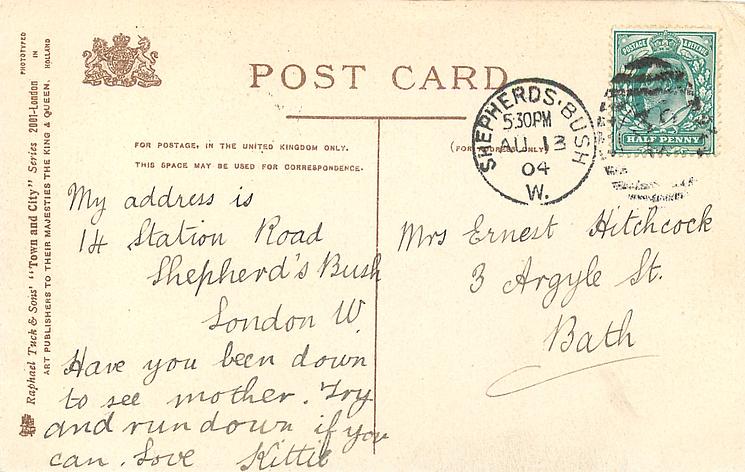 POST CARD
FOR POSTAGE, IN THE UNITED KINGDOM ONLY.
THIS SPACE MAY BE USED FOR CORRESPONDENCE.
(FOR ADDRESS ONLY.)
PHOTOTYPED IN HOLLAND
Raphael Tuck & Sons' "Town and City" Series 2001-London
ART PUBLISHERS TO THEIR MAJESTIES THE KING & QUEEN.
POSTAGE & REVENUE
HALF PENNY
SHEPHERDS·BUSH
5.30PM
AU 13
04
W.
My address is
14 Station Road
Shepherd's Bush
London W.
Have you been down
to see mother. Try
and run down if you
can. Love Kittie
Mrs Ernest Hitchcock
3 Argyle St.
Bath